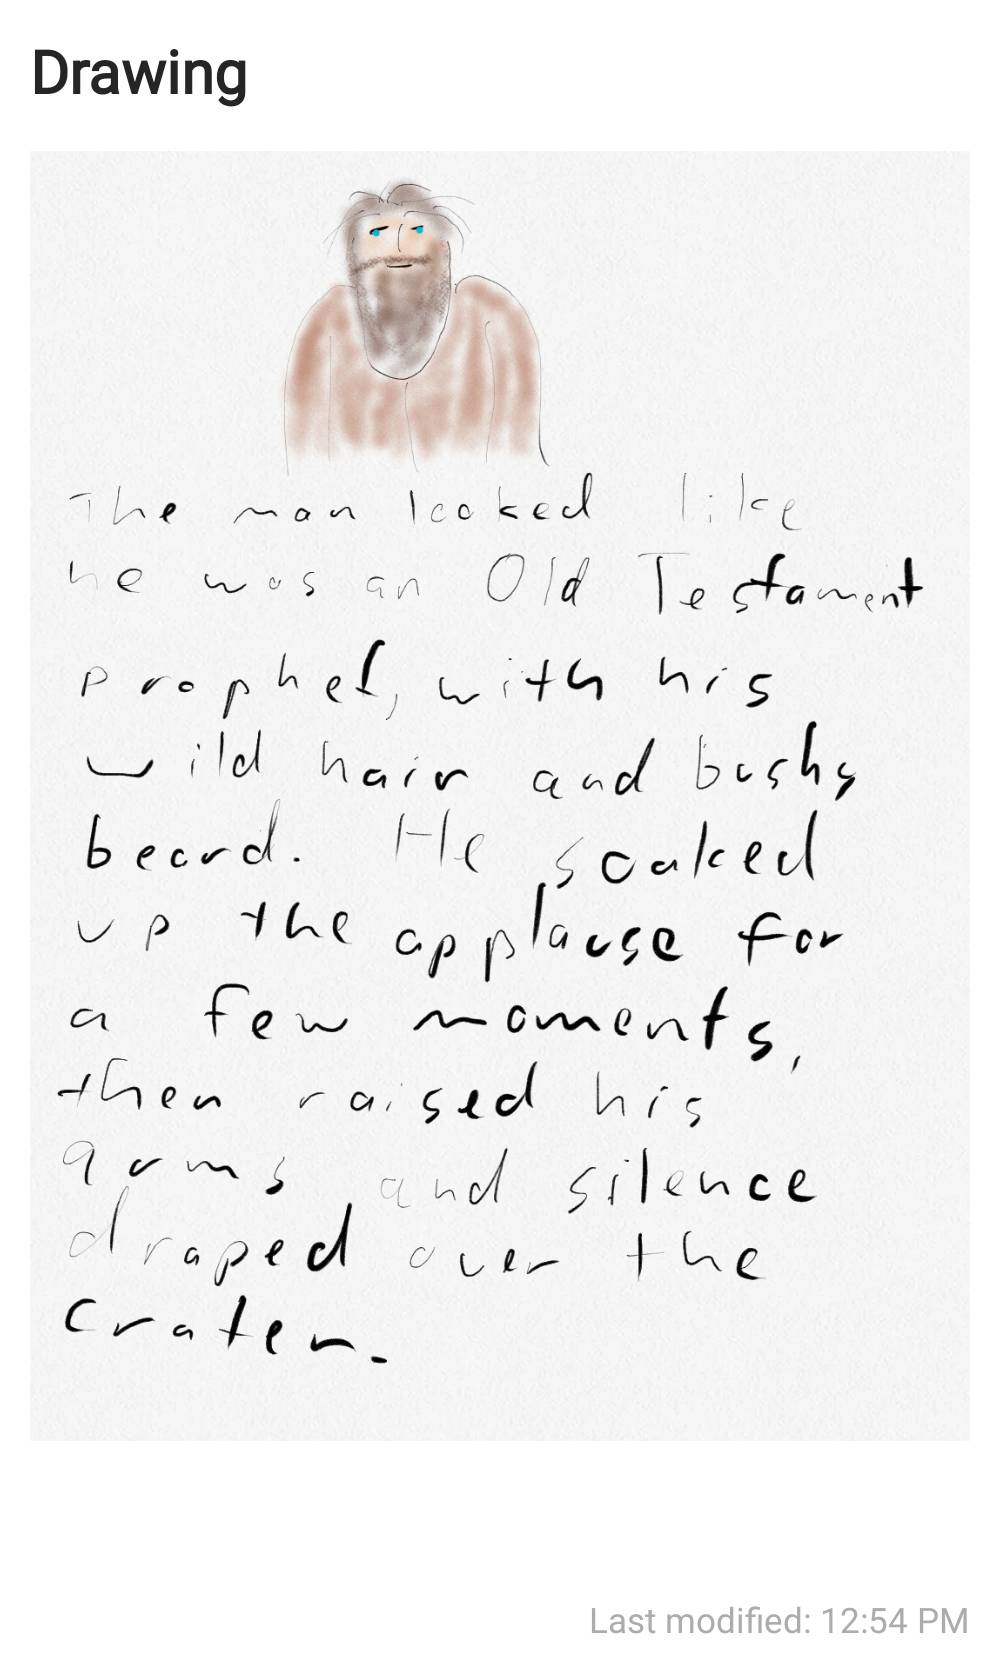 Drawing
The man looked like
he was an Old Testament
prophet, with his
wild hair and bushy
beard. He soaked
up the applause for
a few moments,
then raised his
arms and silence
draped over the
crater.
Last modified: 12:54 PM